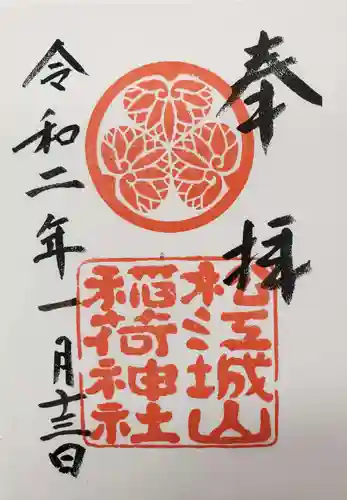 奉拝
松江城山
稲荷神社
令和二年一月十三日